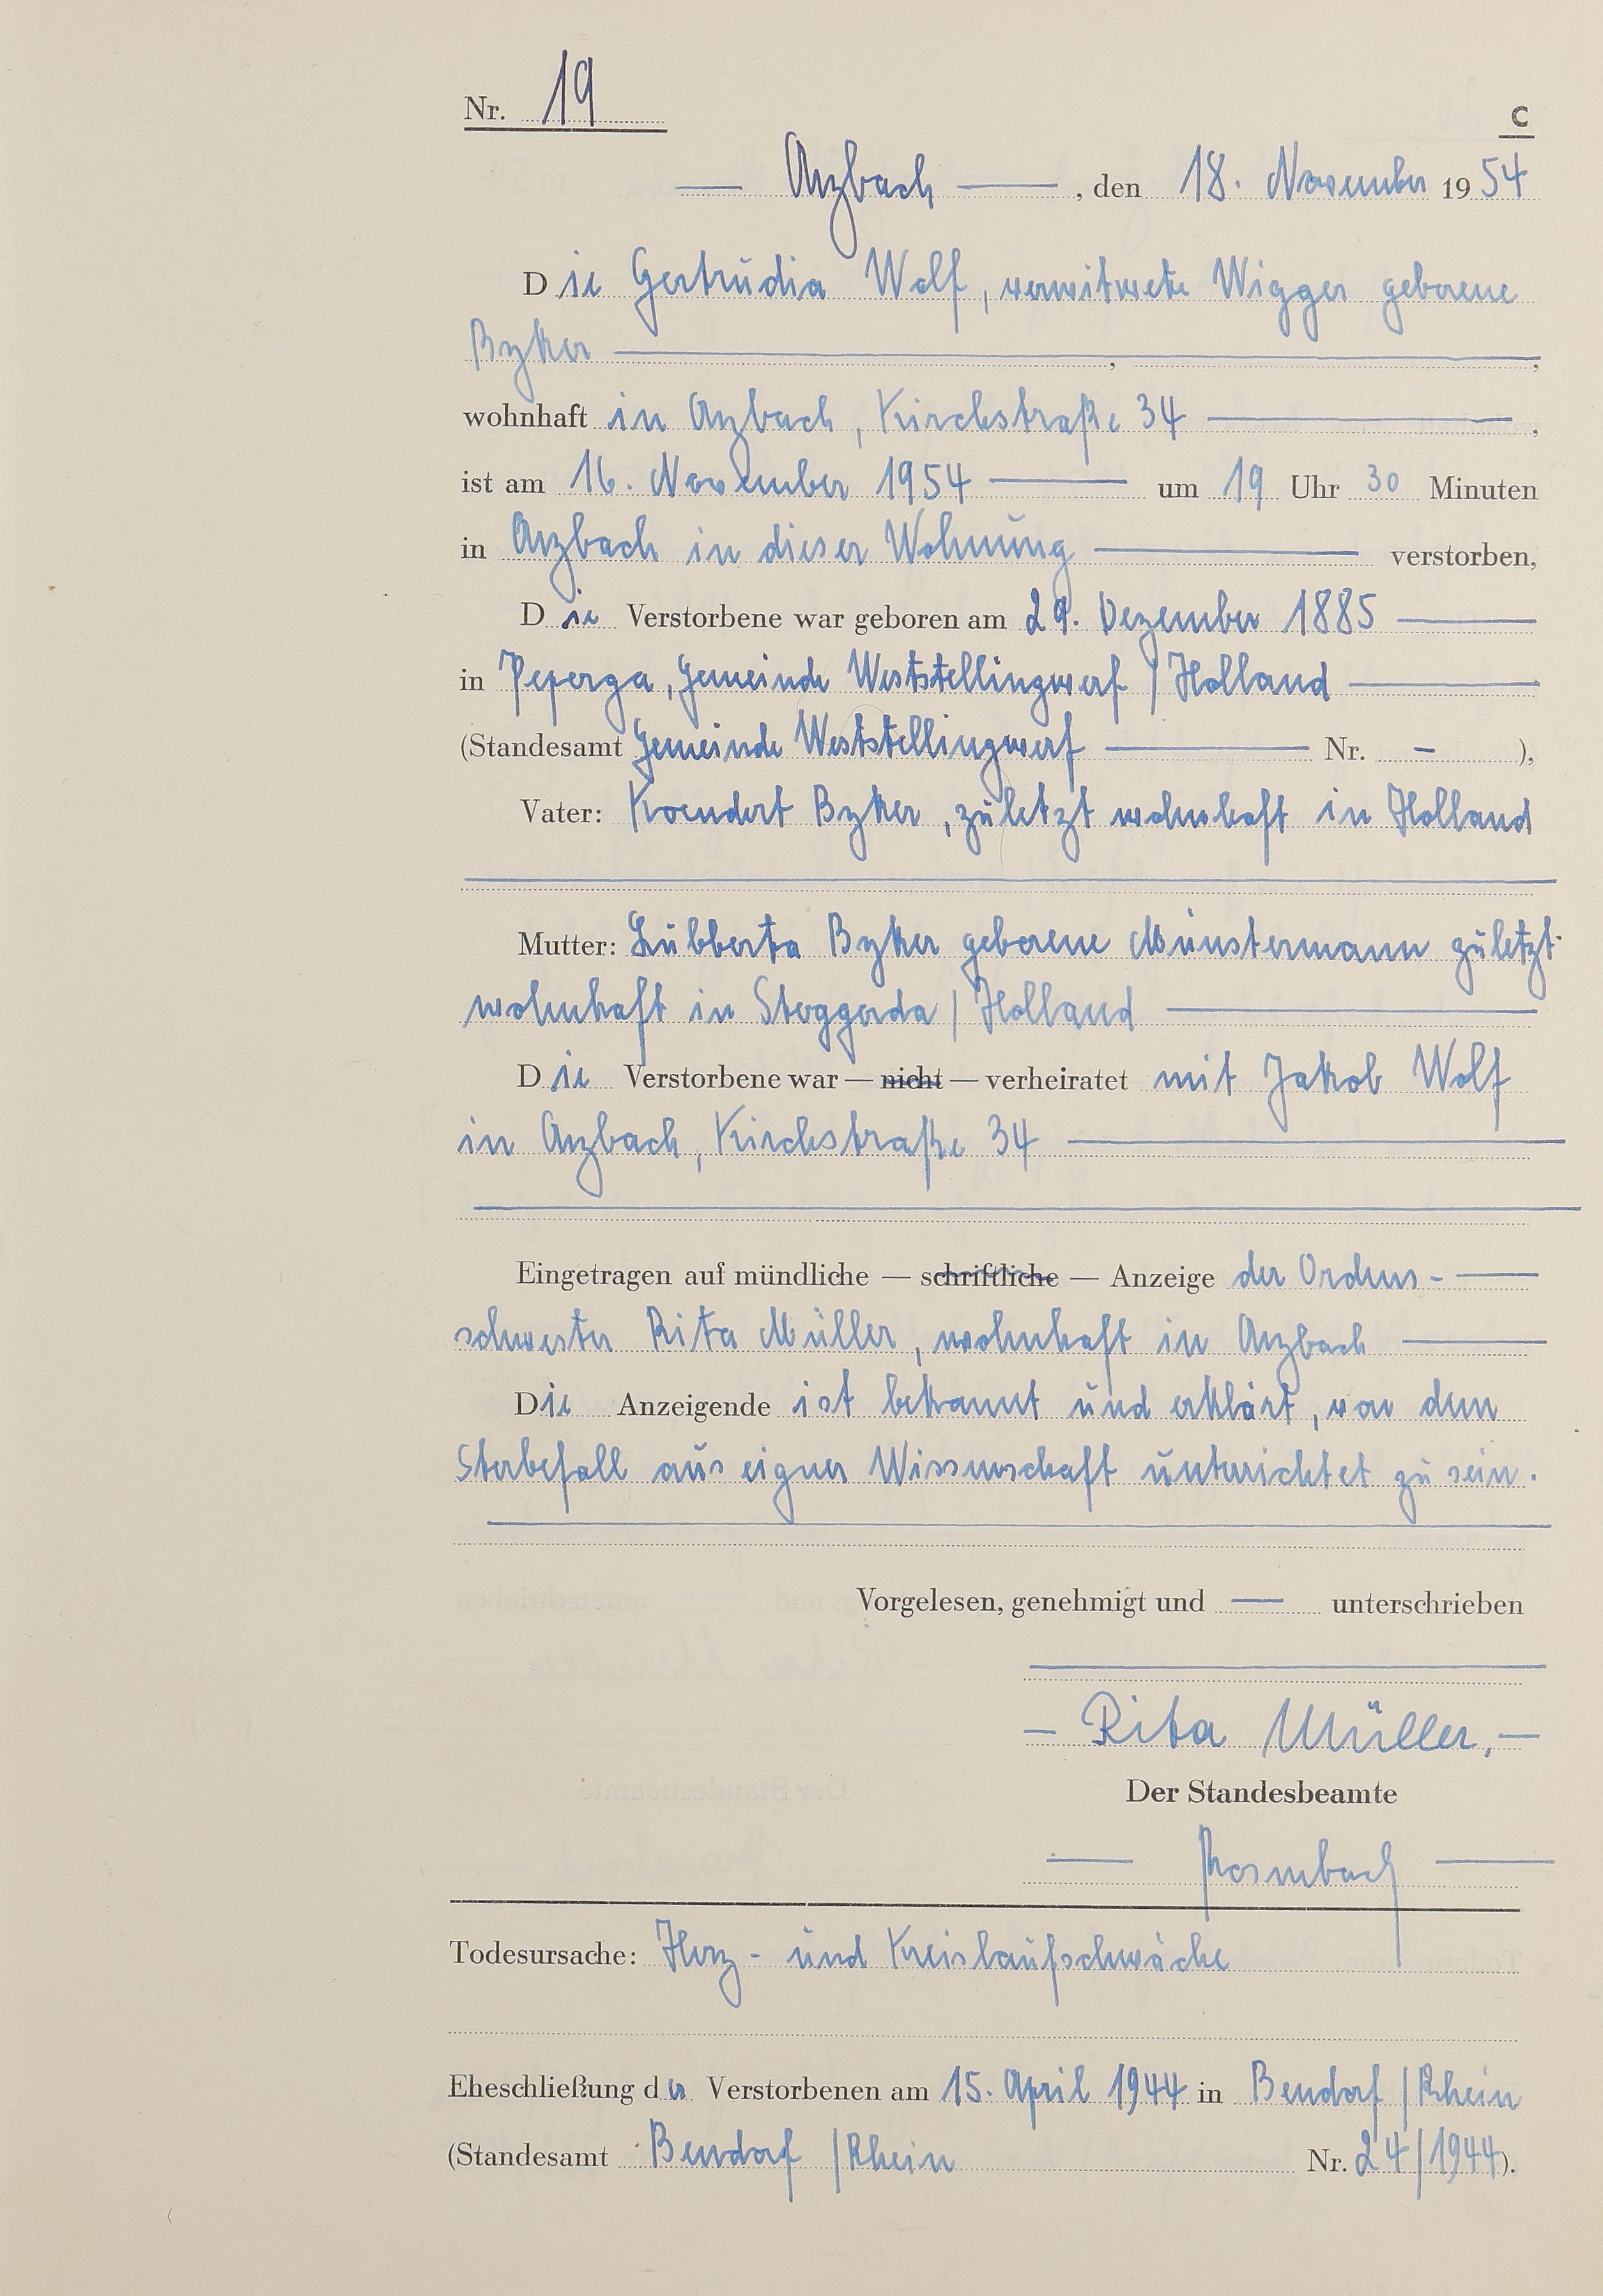 Nr. 19
C
— Arzbach —, den 18. November 1954
Die Gertrudia Wolf, verwitwete Wigger geborene
Byker —, —,
wohnhaft in Arzbach, Kirchstraße 34 —,
ist am 16. November 1954 — um 19 Uhr 30 Minuten
in Arzbach in dieser Wohnung — verstorben,
Die Verstorbene war geboren am 29. Dezember 1885 —
in Peperga, Gemeinde Weststellingwerf / Holland —
(Standesamt Gemeinde Weststellingwerf — Nr. – ),
Vater: Koendert Byker, zuletzt wohnhaft in Holland
Mutter: Lubberta Byker geborene Munstermann zuletzt
wohnhaft in Steggerda / Holland —
Die Verstorbene war — nicht — verheiratet mit Jakob Wolf
in Arzbach, Kirchstraße 34 —
Eingetragen auf mündliche — schriftliche — Anzeige der Ordens- —
schwester Rita Müller, wohnhaft in Arzbach —
Die Anzeigende ist bekannt und erklärt, von dem
Sterbefall aus eigner Wissenschaft unterichtet zu sein.
Vorgelesen, genehmigt und — unterschrieben
– Rita Müller. –
Der Standesbeamte
— Rosenbach —
Todesursache: Herz- und Kreislaufschwäche
Eheschließung der Verstorbenen am 15. April 1944 in Bendorf / Rhein
(Standesamt Bendorf / Rhein Nr. 24/1944).